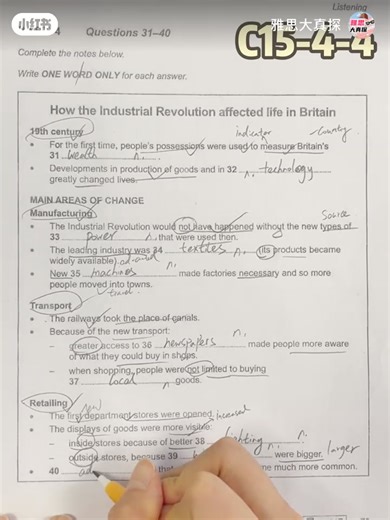 小红书
雅思大真探
雅思
大真探
Listening
4 Questions 31–40
C15-4-4
Complete the notes below.
Write ONE WORD ONLY for each answer.
How the Industrial Revolution affected life in Britain
indicator
country
19th century
• For the first time, people's possessions were used to measure Britain's
31 wealth n.
• Developments in production of goods and in 32 n. technology
greatly changed lives.
MAIN AREAS OF CHANGE
Manufacturing
source
• The Industrial Revolution would not have happened without the new types of
33 power n. that were used then.
• The leading industry was 34 textiles n. (its products became
widely available)
• New 35 machines n. made factories necessary and so more
people moved into towns.
travel
Transport
• The railways took the place of canals.
• Because of the new transport:
– greater access to 36 newspapers n. made people more aware
of what they could buy in shops.
– when shopping, people were not limited to buying
37 local n. goods.
Retailing
new
• The first department stores were opened.
increased
• The displays of goods were more visible:
– inside stores because of better 38 lighting n.
– outside stores, because 39 were bigger. larger
• 40 ad that me much more common.